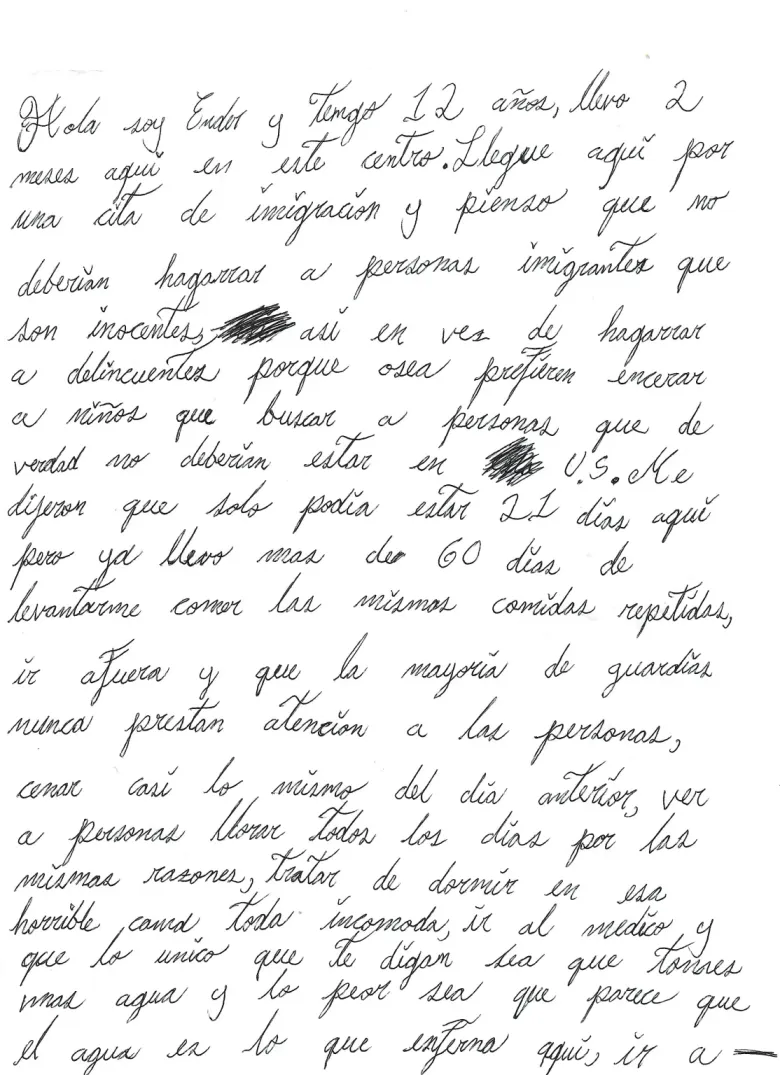 Hola soy Ender y Temgo 12 años, llevo 2
meses aquí en este centro. Llegue aquí por
una cita de imigración y pienso que no
deberían hagarrar a personas imigrantes que
son inocentes, así en vez de hagarrar
a delincuentes porque osea prefieren encerar
a niños que buscar a personas que de
verdad no deberían estar en U.S. Me
dijeron que solo podía estar 21 días aquí
pero ya llevo mas de 60 días de
levantarme comer las mismas comidas repetidas,
ir afuera y que la mayoría de guardias
nunca prestan atención a las personas,
cenar casi lo mismo del día anterior, ver
a personas llorar todos los días por las
mismas razones, tratar de dormir en esa
horrible cama toda incomoda, ir al medico y
que lo unico que te digan sea que tomes
mas agua y lo peor sea que parece que
el agua es lo que enferma aquí, ir a —